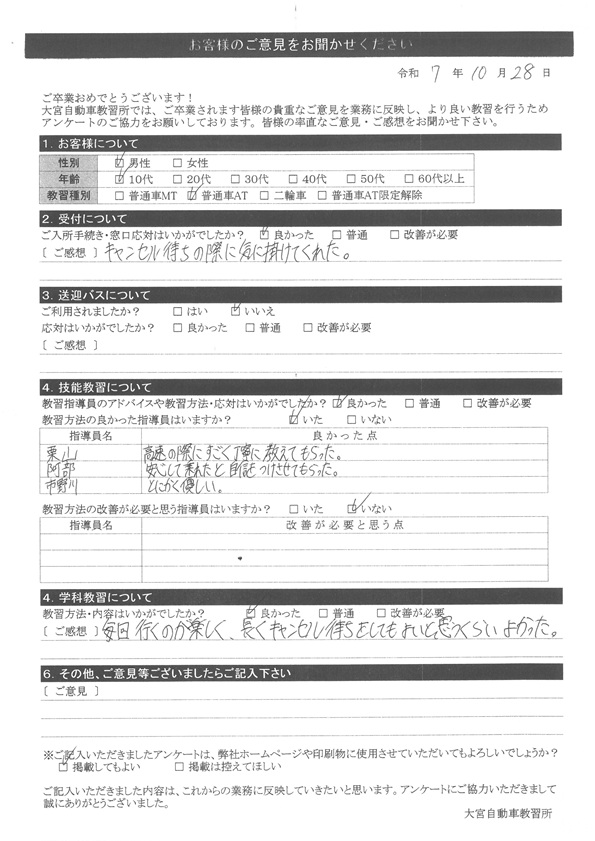 お客様のご意見をお聞かせください
令和 7 年 10 月 28 日
ご卒業おめでとうございます！
大宮自動車教習所では、ご卒業されます皆様の貴重なご意見を業務に反映し、より良い教習を行うため
アンケートのご協力をお願いしております。皆様の率直なご意見・ご感想をお聞かせ下さい。
1. お客様について
性別 ☑ 男性 □ 女性
年齢 ☑ 10代 □ 20代 □ 30代 □ 40代 □ 50代 □ 60代以上
教習種別 □ 普通車MT ☑ 普通車AT □ 二輪車 □ 普通車AT限定解除
2. 受付について
ご入所手続き・窓口応対はいかがでしたか？ ☑ 良かった □ 普通 □ 改善が必要
［ ご感想 ］ キャンセル待ちの際に気に掛けてくれた。
3. 送迎バスについて
ご利用されましたか？ □ はい ☑ いいえ
応対はいかがでしたか？ □ 良かった □ 普通 □ 改善が必要
［ ご感想 ］
4. 技能教習について
教習指導員のアドバイスや教習方法・応対はいかがでしたか？ ☑ 良かった □ 普通 □ 改善が必要
教習方法の良かった指導員はいますか？ ☑ いた □ いない
指導員名 良かった点
栗山 高速の際にすごく丁寧に教えてもらった。
阿部 安心して乗れたと自信つけさせてもらった。
市野川 とにかく優しい。
教習方法の改善が必要と思う指導員はいますか？ □ いた ☑ いない
指導員名 改善が必要と思う点
4. 学科教習について
教習方法・内容はいかがでしたか？ ☑ 良かった □ 普通 □ 改善が必要
［ ご感想 ］ 毎回行くのが楽しく、長くキャンセル待ちをしてもよいと思うくらいよかった。
6. その他、ご意見等ございましたらご記入下さい
［ ご意見 ］
※ご記入いただきましたアンケートは、弊社ホームページや印刷物に使用させていただいてもよろしいでしょうか？
☑ 掲載してもよい □ 掲載は控えてほしい
ご記入いただきました内容は、これからの業務に反映していきたいと思います。アンケートにご協力いただきまして
誠にありがとうございました。
大宮自動車教習所